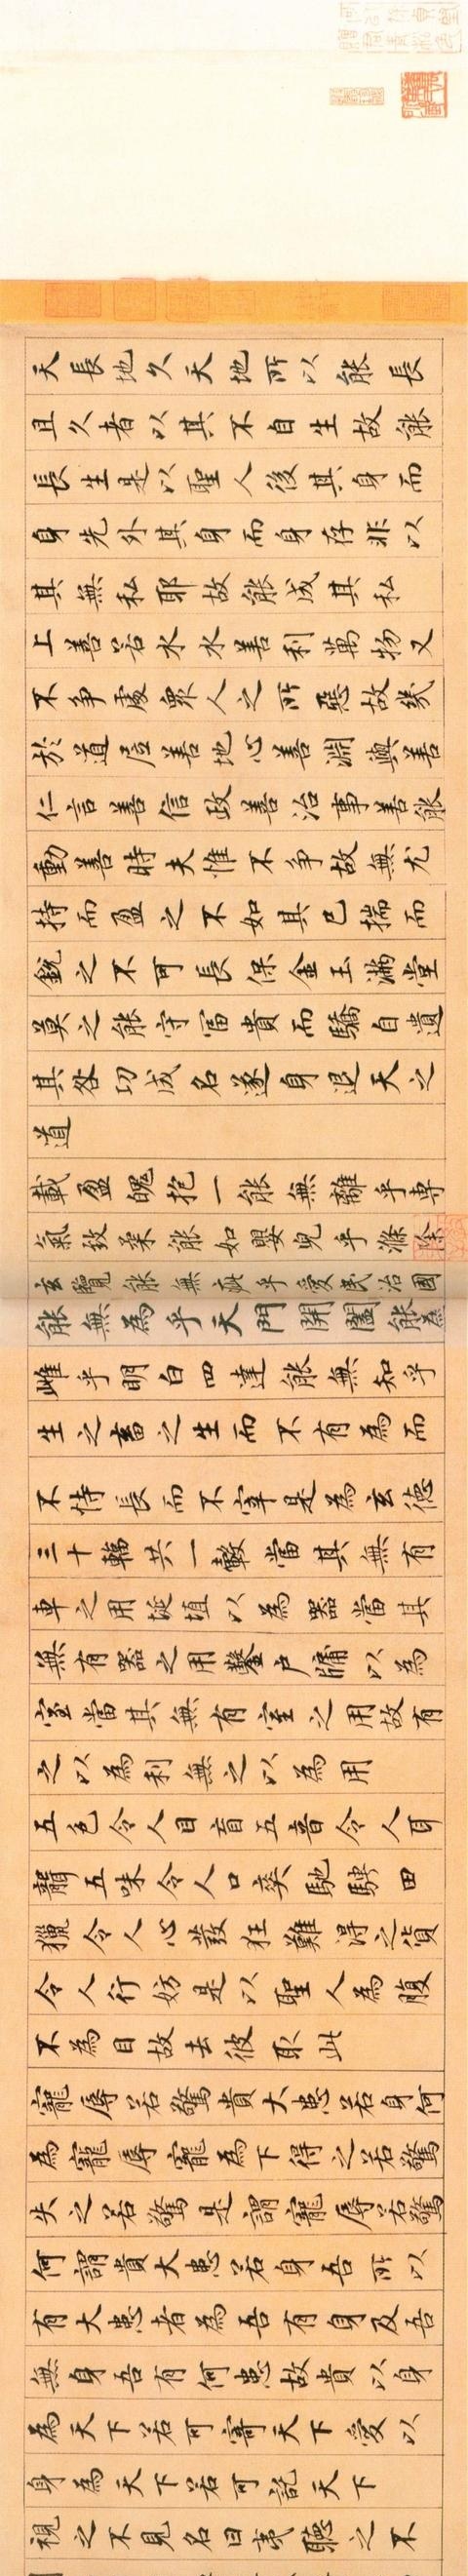 天長地久天地所以能長
且久者以其不自生故能
長生是以聖人後其身而
身先外其身而身存非以
其無私耶故能成其私
上善若水水善利萬物又
不爭處衆人之所惡故幾
於道居善地心善淵與善
仁言善信政善治事善能
動善時夫惟不爭故無尤
持而盈之不如其已揣而
銳之不可長保金玉滿堂
莫之能守富貴而驕自遺
其咎功成名遂身退天之
道
載盈魄抱一能無離乎専
氣致柔能如嬰兒乎滌除
玄覽能無疵乎愛民治國
能無為乎天門開闔能為
雌乎明白四達能無知乎
生之畜之生而不有為而
不恃長而不宰是為玄德
三十輻共一轂當其無有
車之用埏埴以為器當其
無有器之用鑿戶牖以為
室當其無有室之用故有
之以為利無之以為用
五色令人目盲五音令人耳
聾五味令人口爽馳騁田
獵令人心發狂難得之貨
令人行妨是以聖人為腹
不為目故去彼取此
寵辱若驚貴大患若身何
為寵辱寵為下得之若驚
失之若驚是謂寵辱若驚
何謂貴大患若身吾所以
有大患者為吾有身及吾
無身吾有何患故貴以身
為天下若可寄天下愛以
身為天下若可託天下
視之不見名曰夷聽之不